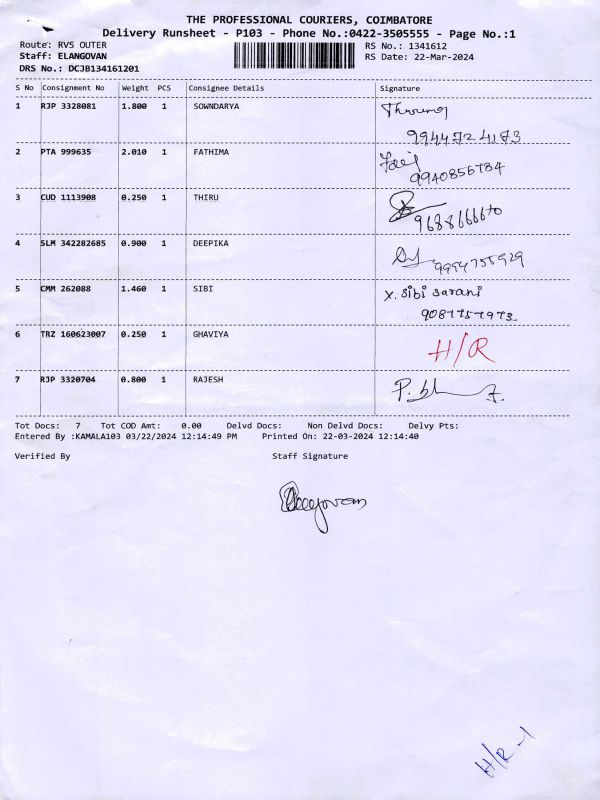 THE PROFESSIONAL COURIERS, COIMBATORE
Delivery Runsheet - P103 - Phone No.:0422-3505555 - Page No.:1
Route: RVS OUTER RS No.: 1341612
Staff: ELANGOVAN RS Date: 22-Mar-2024
DRS No.: DCJB134161201
S No Consignment No Weight PCS Consignee Details Signature
1 RJP 3328081 1.800 1 SOWNDARYA
9944724173
2 PTA 999635 2.010 1 FATHIMA
9940856784
3 CUD 1113908 0.250 1 THIRU
9688666670
4 SLM 342282685 0.900 1 DEEPIKA
9994755929
5 CMM 262088 1.460 1 SIBI X. Sibi Sarani
9087757973
6 TRZ 160623007 0.250 1 GHAVIYA H/R
7 RJP 3320704 0.800 1 RAJESH
Tot Docs: 7 Tot COD Amt: 0.00 Delvd Docs: Non Delvd Docs: Delvy Pts:
Entered By :KAMALA103 03/22/2024 12:14:49 PM Printed On: 22-03-2024 12:14:40
Verified By Staff Signature
H/R-1